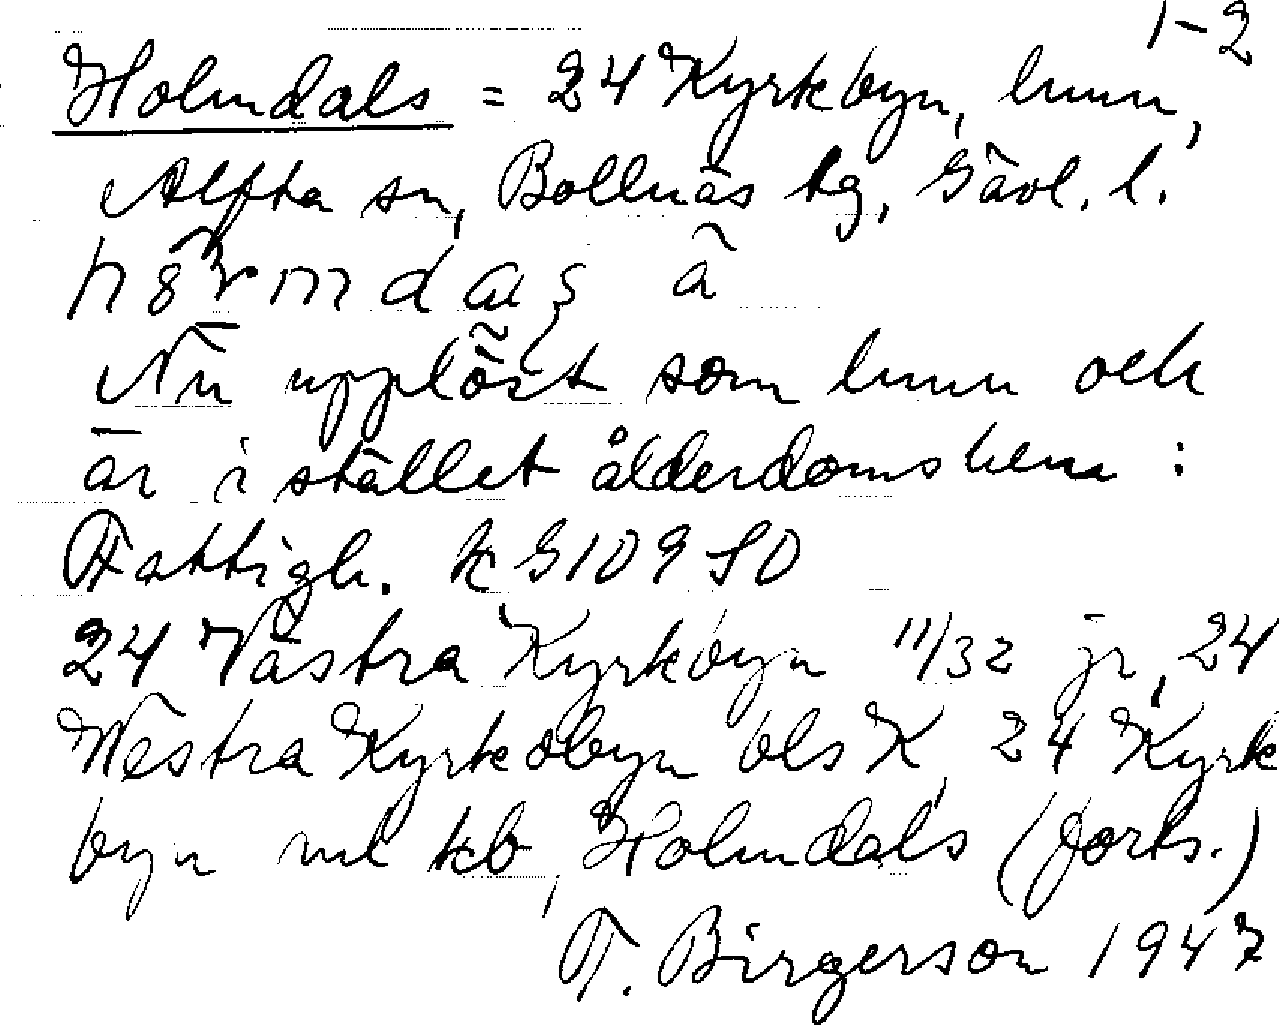 1-2
Holmdals = 24 Kyrkbyn, hmn,
Alfta sn, Bollnäs tg, Gävl. l.
Nu upplöst som hmn och
är i stället ålderdomshem :
Fattigh. k G109 SO
24 Västra Kyrkbyn 11/32 jr, 24
Westra Kyrkobyn bls K, 24 Kyrk
byn ml kb, Holmdals (Jorts.)
T. Birgerson 1947